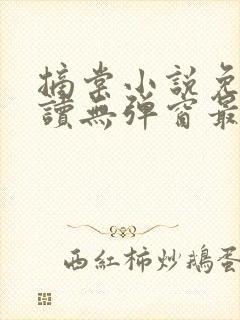 摘棠小説免
讀無彈窗最
西紅柿炒鵝蛋